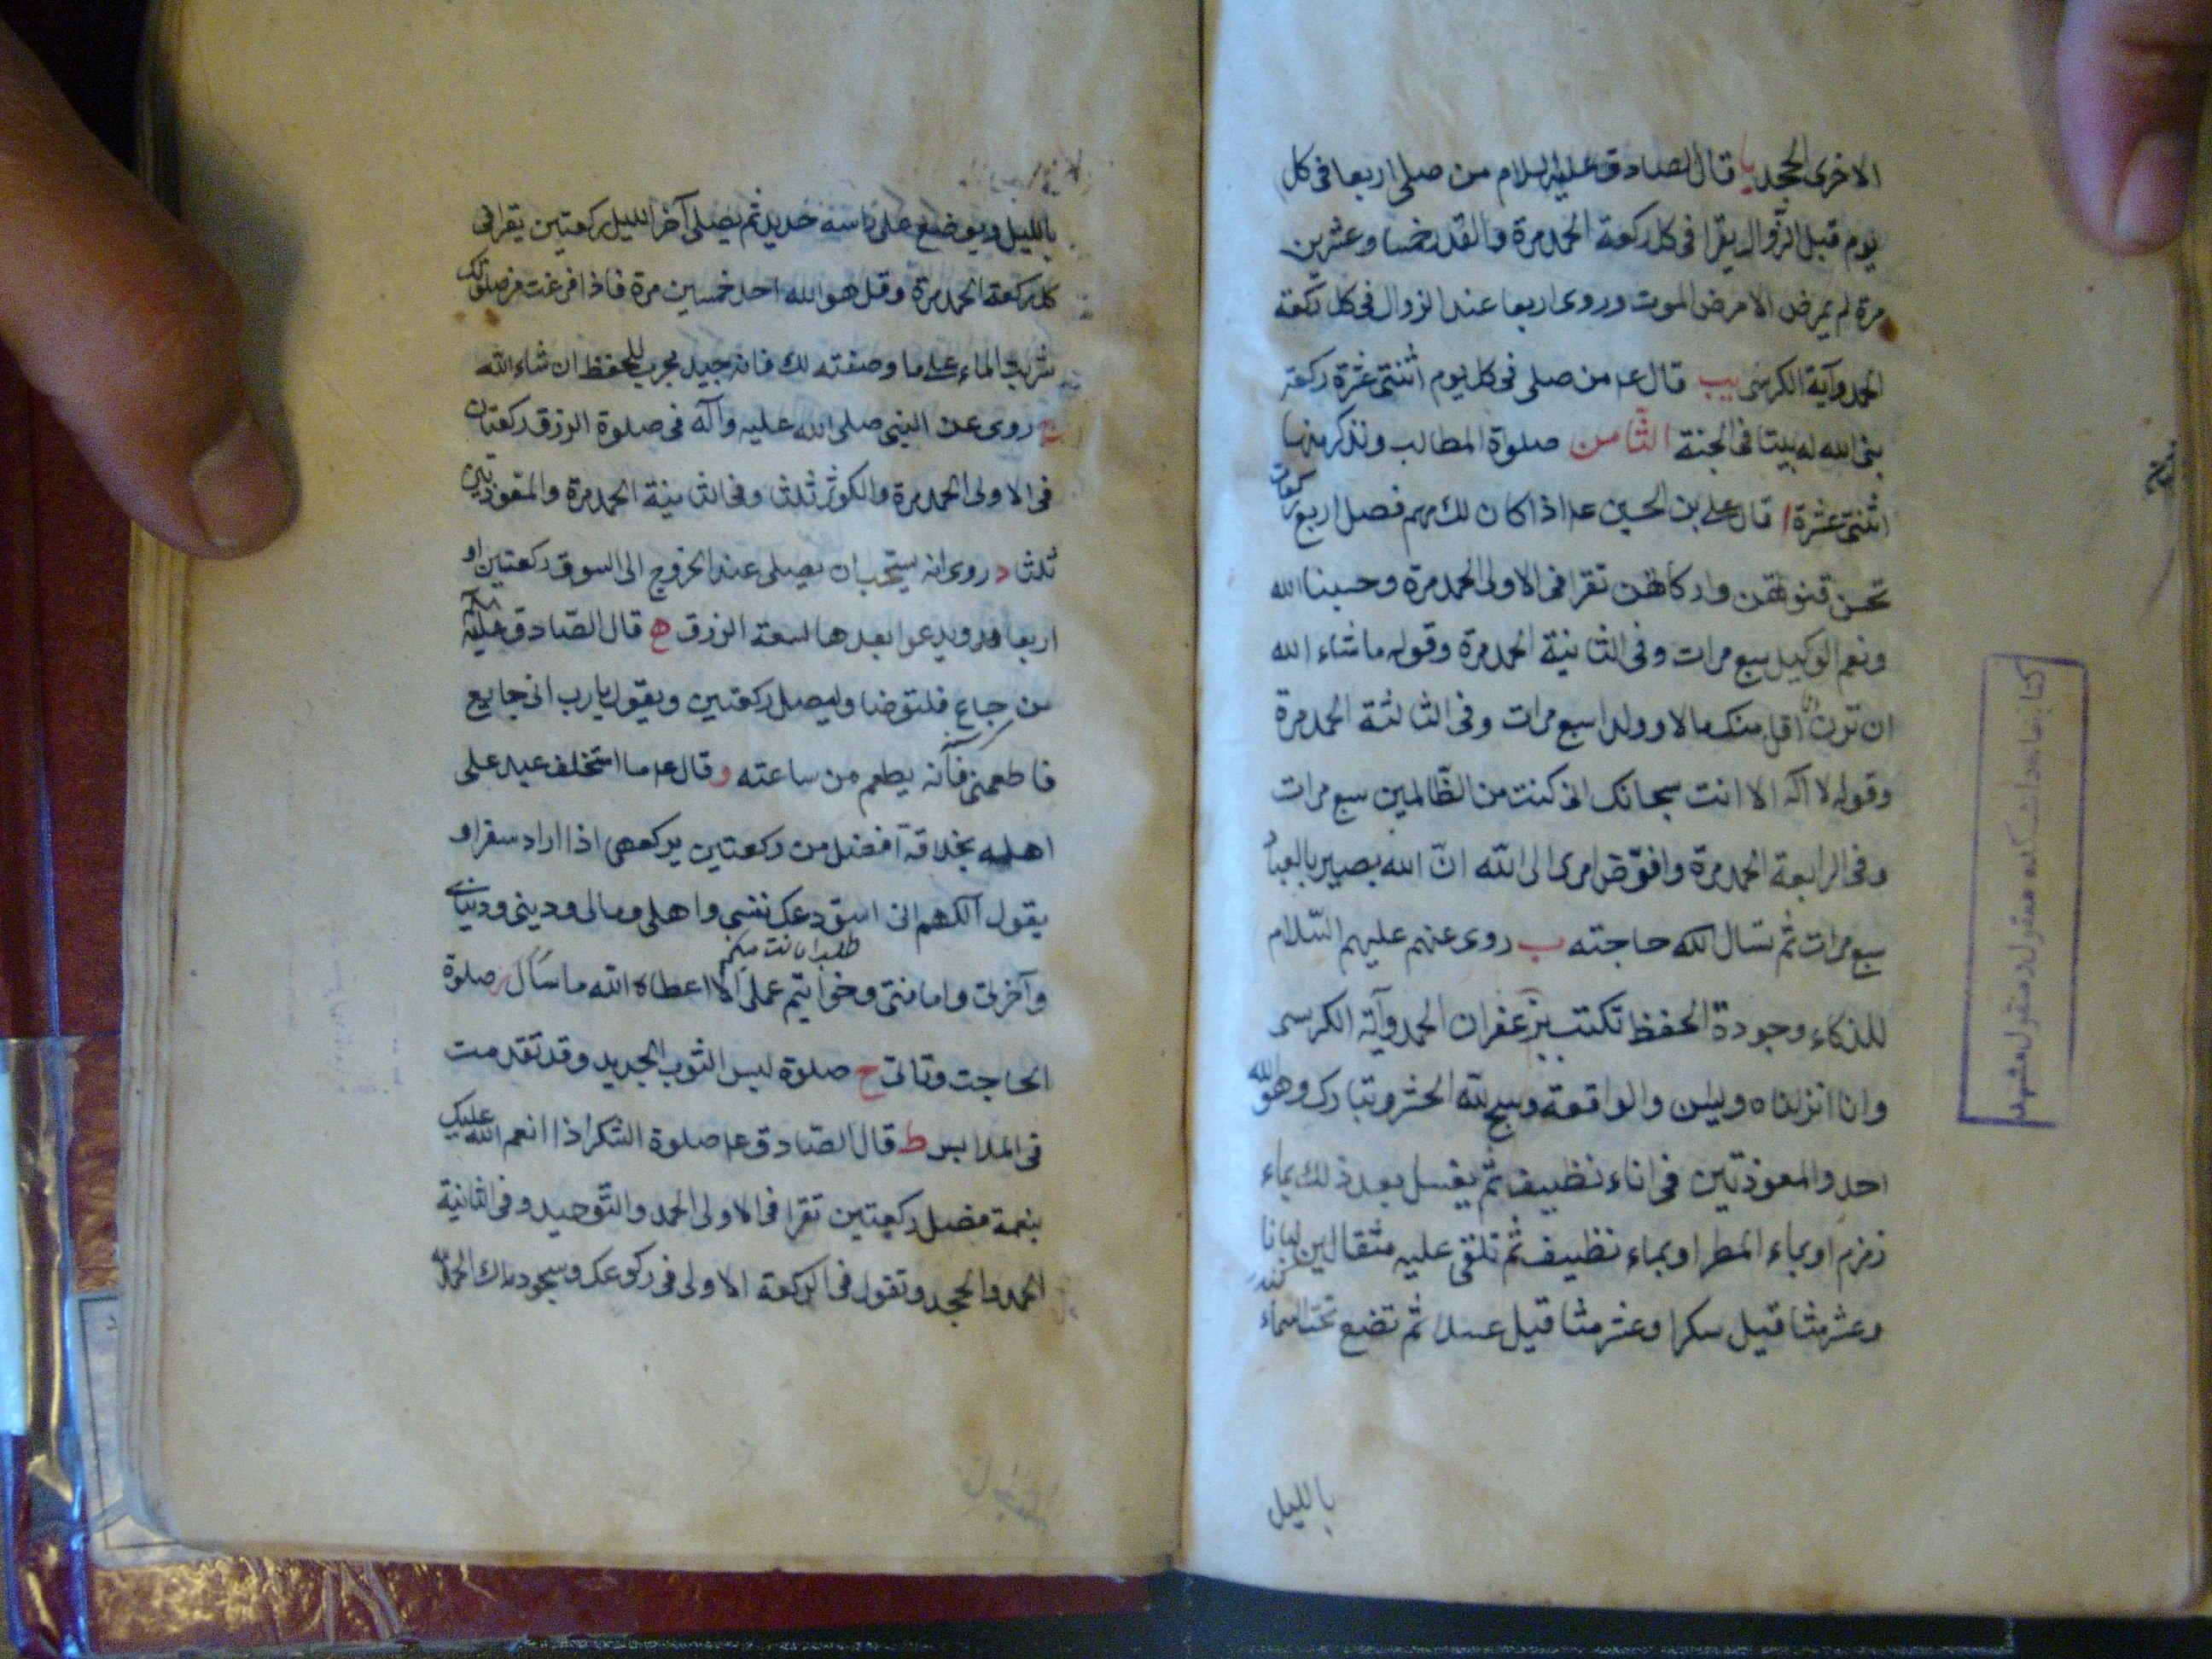 الاخرى الجحد يا قال الصادق عليه السلام من صلى اربعا فى كل
يوم قبل الزوال يقرا فى كل ركعة الحمد مرة والقدر خمسا وعشرين
مرة لم يمرض الا مرض الموت وروى اربعا عند الزوال فى كل ركعة
الحمد وآية الكرسى يب قال ع من صلى فى كل يوم اثنتى عشرة ركعة
بنى الله له بيتا فى الجنة الثامن صلوة المطالب ونذكر منها
اثنتى عشرة ا قال على بن الحسين ع اذا كان لك مهم فصل اربع ركعات
تحسن قنوتهن واركانهن تقرا فى الاولى الحمد مرة وحسبنا الله
ونعم الوكيل سبع مرات وفى الثانية الحمد مرة وقوله ما شاء الله
ان ترن انا اقل منك مالا وولدا سبع مرات وفى الثالثة الحمد مرة
وقوله لا اله الا انت سبحانك انى كنت من الظالمين سبع مرات
وفى الرابعة الحمد مرة وافوّض امرى الى الله انّ الله بصير بالعباد
سبع مرات ثم تسال الله حاجته ب روى عنهم عليهم السّلام
للذكاء وجودة الحفظ تكتب بزعفران الحمد وآية الكرسى
وانا انزلناه ويس والواقعة وسبح لله الحشر وتبارك وهو الله
احد والمعوذتين فى اناء نظيف ثم يغسل بعد ذلك بماء
زمزم او بماء المطر او بماء نظيف ثم تلقى عليه مثقالين لبانا
كندر
وعشر مثاقيل سكرا وعشر مثاقيل عسلا ثم تضع تحت السماء
بالليل
بالليل ويوضع على راسه حديد ثم يصلى آخر الليل ركعتين يقرا فى
كل ركعة الحمد مرة وقل هو الله احد خمسين مرة فاذا فرغت من صلوتك
شربت الماء على ما وصفته لك فانه جيد مجرب للحفظ ان شاء الله
ج روى عن النبى صلى الله عليه وآله فى صلوة الرزق ركعتان
فى الاولى الحمد مرة والكوثر ثلث وفى الثانية الحمد مرة والمعوذتين
ثلثا د روى انه يستحب ان يصلى عند الخروج الى السوق ركعتين او
اربعا ويدعو بعدها لسعة الرزق ه قال الصّادق عليه السلام
من جاع فليتوضا وليصل ركعتين ويقول يا رب انى جايع
فاطعمنى فانه يطعم من ساعته و قال ع ما استخلف عبد على
اهله بخلافة افضل من ركعتين يركعهما اذا اراد سفرا و
يقول اللهم انى استودعك نفسى واهلى ومالى ودينى ودنياى
وآخرتى وامانتى وخواتيم عملى الا اعطاه الله ما سأل ز صلوة
الحاجت وتاتى ح صلوة لبس الثوب الجديد وقد تقدمت
فى الملابس ط قال الصّادق ع صلوة الشكر اذا انعم الله عليك
بنعمة فصل ركعتين تقرا فى الاولى الحمد والتّوحيد وفى الثانية
الحمد والجحد وتقول فى الركعة الاولى فى ركوعك وسجودك الحمد لله